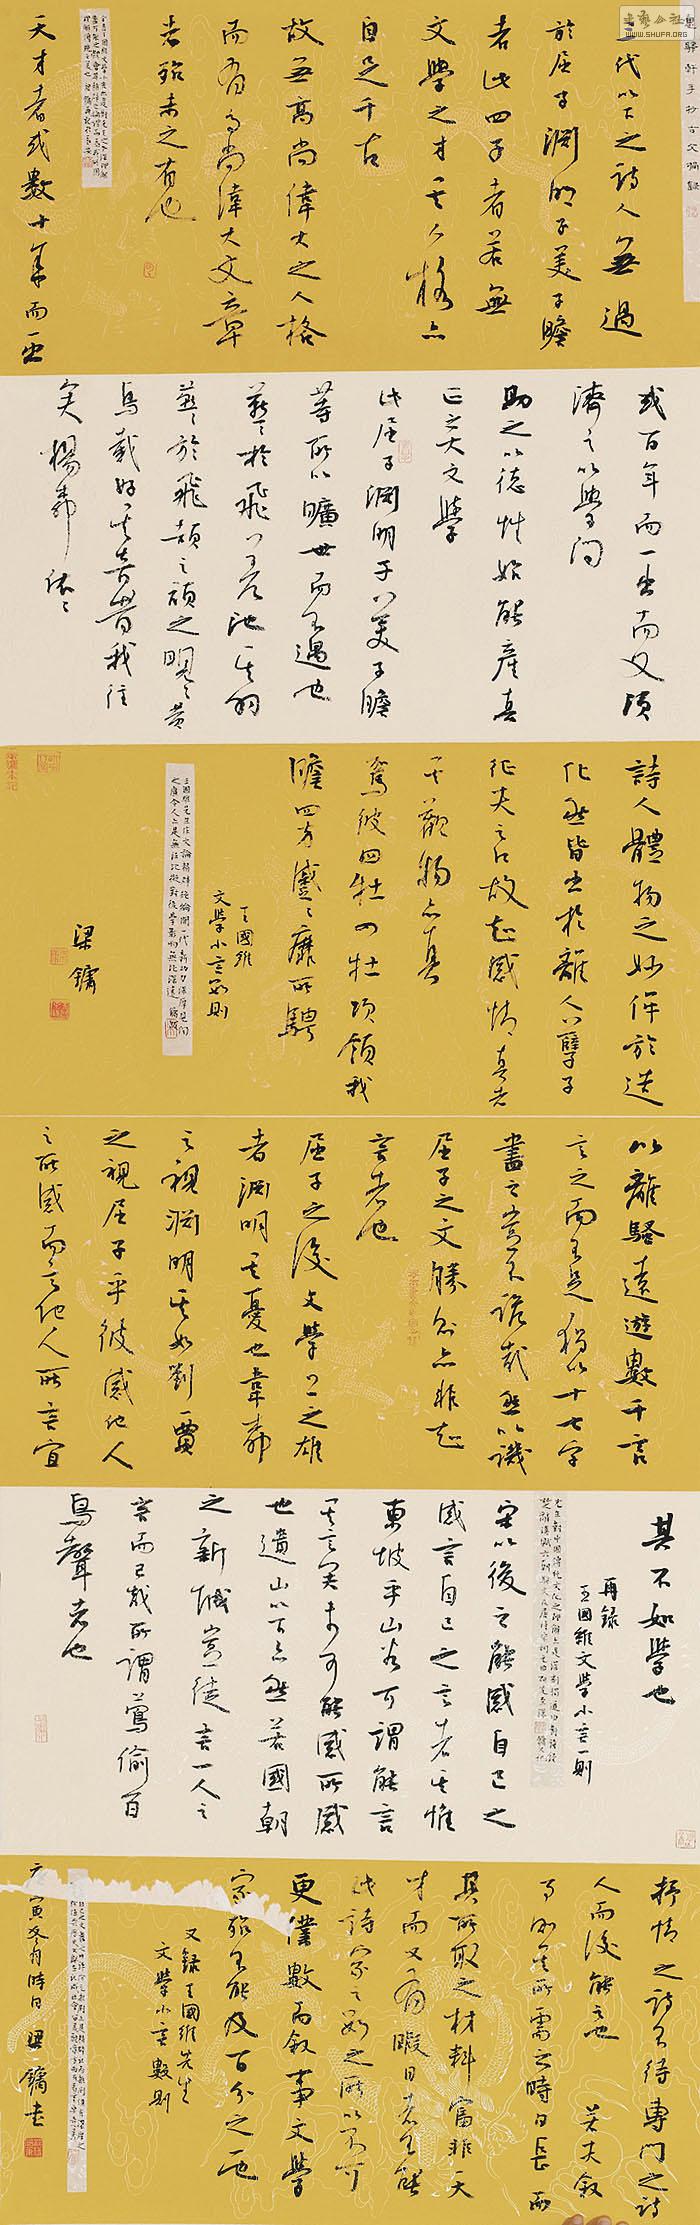 三代以下之詩人無過
於屈子淵明子美子瞻
者此四子者若無
文學之才其人格亦
自足千古
故無高尚偉大之人格
而有高尚偉大文章
者殆未之有也
天才者或數十年而一出
或百年而一出而又須
濟之以學問
助之以德性始能產真
正之大文學
此屈子淵明子美子瞻
等所以曠世而不遇也
燕燕於飛差池其羽
燕燕於飛頡之頏之睍睆黃
鳥載好其音昔我往
矣楊柳依依
詩人體物之妙侔於造
化然皆出於離人孽子
征夫之口故知感情真者
其觀物亦真
駕彼四牡四牡項領我
瞻四方蹙蹙靡所騁
王國維
文學小言數則
梁鏞
以離騷遠遊數千言
言之而不足獨以十七字
盡之豈不詭哉然以譏
屈子之文勝則亦非知
言者也
屈子之後文學上之雄
者淵明其憂也韋柳
之視淵明其如劉賈
之視屈子乎彼感他人
之所感而言他人所言宜
其不如學也
再錄
王國維文學小言一則
宋以後之能感自己之
感言自己之言者其惟
東坡乎山谷可謂能言
其言矣未可能感所感
也遺山以下亦然若國朝
之新城豈徒言一人之
言而已哉所謂鶯偷百
鳥聲者也
抒情之詩不待專門之詩
人而後能之也 若夫敘
事則其所需之時日長而
其所取之材料富非天
才而又有暇日者不能
此詩家之數之所以不可
更僕數而敘事文學
家殆不能及百分之一也
又錄王國維先生
文學小言數則
庚寅冬月時日梁鏞書
WWW.SHUFA.ORG